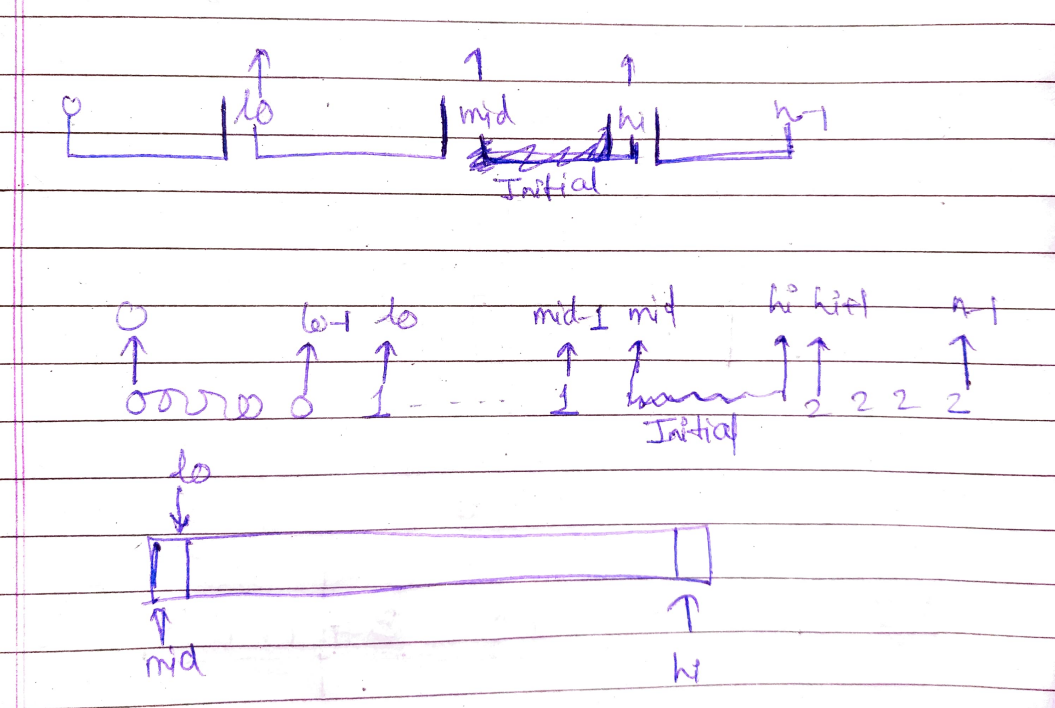 0 lo mid hi n-1
Initial
0 lo-1 lo mid-1 mid hi hi+1 n-1
0 0 1 - - - - - - 1 2 2 2 2
Initial
lo
mid hi